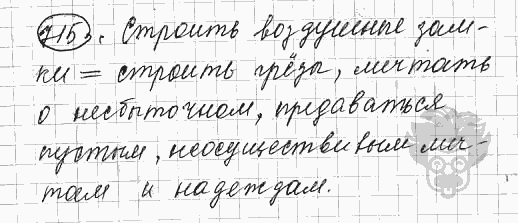 715. Строить воздушные зам-
ки = строить грёзы, мечтать
о несбыточном, предаваться
пустым, неосуществивым меч-
там и надеждам.